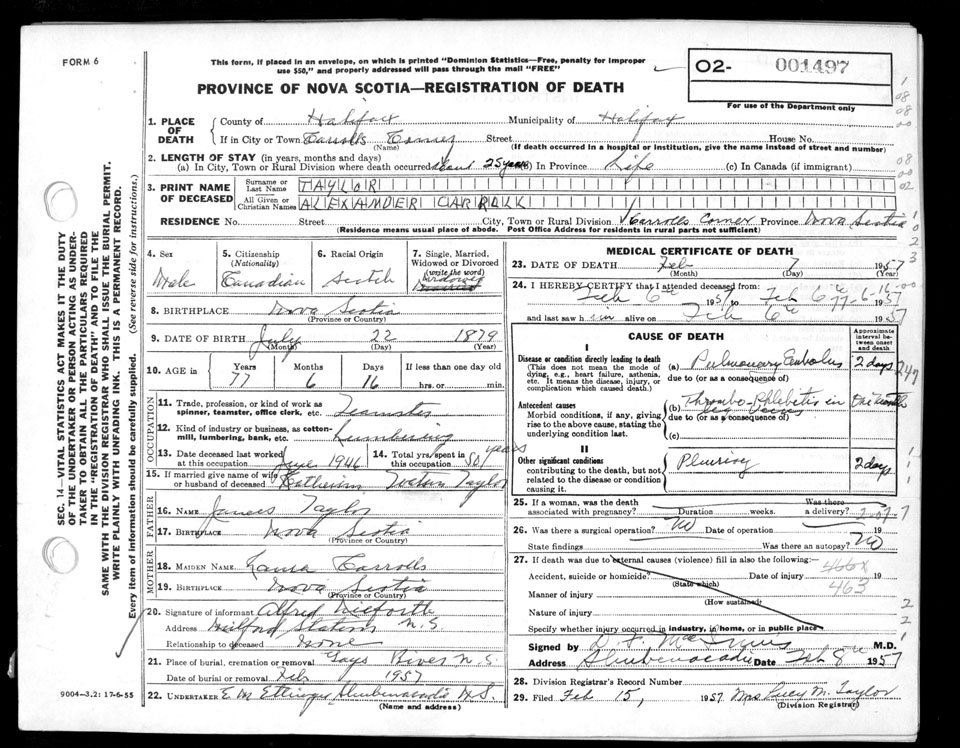 FORM 6
This form, if placed in an envelope, on which is printed "Dominion Statistics—Free, penalty for improper
use $50," and properly addressed will pass through the mail "FREE"
02- 001497
For use of the Department only
PROVINCE OF NOVA SCOTIA—REGISTRATION OF DEATH
1. PLACE OF DEATH County of Halifax Municipality of Halifax
If in City or Town Carrolls Corner Street House No.
(Name) (If death occurred in a hospital or institution, give the name instead of street and number)
2. LENGTH OF STAY (in years, months and days)
(a) In City, Town or Rural Division where death occurred about 25 years (b) In Province Life (c) In Canada (if immigrant)
3. PRINT NAME OF DECEASED Surname or Last Name TAYLOR
All Given or Christian Names ALEXANDER CARROLL
RESIDENCE No. Street City, Town or Rural Division Carrolls Corner Province Nova Scotia
(Residence means usual place of abode. Post Office Address for residents in rural parts not sufficient)
4. Sex Male
5. Citizenship (Nationality) Canadian
6. Racial Origin Scotch
7. Single, Married, Widowed or Divorced (write the word) Widowed
8. BIRTHPLACE Nova Scotia
(Province or Country)
9. DATE OF BIRTH July 22 1879
(Month) (Day) (Year)
10. AGE Years 77 Months 6 Days 16 If less than one day old hrs. or min.
OCCUPATION
11. Trade, profession, or kind of work as spinner, teamster, office clerk, etc. Teamster
12. Kind of industry or business, as cotton-mill, lumbering, bank, etc. Lumbering
13. Date deceased last worked at this occupation June 1946
14. Total yrs. spent in this occupation 50 years
15. If married give name of wife or husband of deceased Catherine Taylor
FATHER
16. NAME James Taylor
17. BIRTHPLACE Nova Scotia
(Province or Country)
MOTHER
18. MAIDEN NAME Laura Carrolls
19. BIRTHPLACE Nova Scotia
(Province or Country)
20. Signature of informant Alfred Nieforth
Address Milford Station N.S.
Relationship to deceased None
21. Place of burial, cremation or removal Gays River N.S.
Date of burial or removal Feb 1957
22. UNDERTAKER E M Ettinger Shubenacadie N.S.
(Name and address)
MEDICAL CERTIFICATE OF DEATH
23. DATE OF DEATH Feb 7 1957
(Month) (Day) (Year)
24. I HEREBY CERTIFY that I attended deceased from:
Feb 6th 1957 to Feb 6 1957
and last saw him alive on Feb 6th 1957
CAUSE OF DEATH
Approximate interval between onset and death
I
Disease or condition directly leading to death
(This does not mean the mode of dying, e.g., heart failure, asthma, etc. It means the disease, injury, or complication which caused death.)
(a) Pulmonary Embolus 2 days
due to (or as a consequence of)
Antecedent causes
Morbid conditions, if any, giving rise to the above cause, stating the underlying condition last.
(b) Thrombo-Phlebitis in leg veins One month
due to (or as a consequence of)
(c)
II
Other significant conditions
contributing to the death, but not related to the disease or condition causing it.
Pleurisy 2 days
25. If a woman, was the death associated with pregnancy? Duration weeks. Was there a delivery?
26. Was there a surgical operation? No Date of operation 19
State findings Was there an autopsy? No
27. If death was due to external causes (violence) fill in also the following:
Accident, suicide or homicide? Date of injury 19
(State which)
466X
463
Manner of injury
(How sustained)
Nature of injury
Specify whether injury occurred in industry, in home, or in public place
Signed by M.D.
Address Shubenacadie Date Feb 8th 1957
28. Division Registrar's Record Number
29. Filed Feb 15, 1957 Mrs Lucy M. Taylor
(Division Registrar)
SEC. 14—VITAL STATISTICS ACT MAKES IT THE DUTY
OF THE UNDERTAKER OR PERSON ACTING AS UNDER-
TAKER TO OBTAIN ALL THE PARTICULARS REQUIRED
IN THE "REGISTRATION OF DEATH" AND TO FILE THE
SAME WITH THE DIVISION REGISTRAR WHO SHALL ISSUE THE BURIAL PERMIT.
WRITE PLAINLY WITH UNFADING INK. THIS IS A PERMANENT RECORD.
Every item of information should be carefully supplied. (See reverse side for instructions.)
9004—3.2: 17-6-55